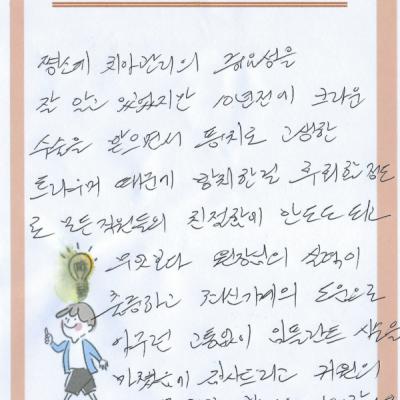 평소에 치아관리의 중요성을
잘 알고 있었지만 10년전에 크라운
수술을 받으면서 통치로 고생한
트라우마 때문에 망치한걸 후회할 정도
로 모든 직원들의 친절함이 안도도 되고
무엇보다 원장님의 실력이
출중하고 최신기계의 도움으로
아무런 고통없이 임플란트 시술을
마쳤음에 감사드리고 귀원의